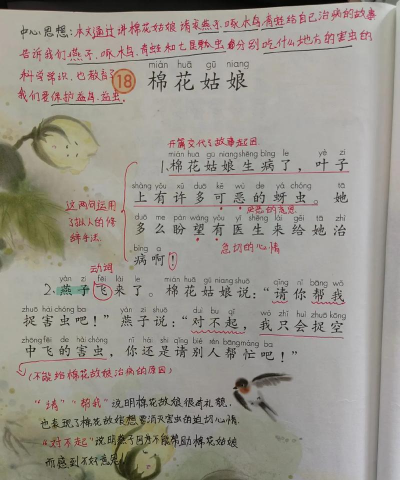 中心思想:本文通过讲棉花姑娘请求燕子、啄木鸟、青蛙给自己治病的故事
告诉我们燕子、啄木鸟、青蛙和七星瓢虫分别吃什么地方的害虫的
科学常识,也教育
我们要保护益鸟、益虫。
mián huā gū niang
18 棉花姑娘
开篇交代了故事起因
mián huā gū niang shēng bìng le yè zi
1.棉花姑娘生病了,叶子
shàng yǒu xǔ duō kě wù de yá chóng tā
上有许多可恶的蚜虫。她
这两句运用
了拟人的修
辞手法
duō me pàn wàng yǒu yī shēng lái gěi tā zhì
多么盼望有医生来给她治
急切的心情
bìng a
病啊!
动词
yàn zi fēi lái le mián huā gū niang shuō qǐng nǐ bāng wǒ
2.燕子飞来了。棉花姑娘说:“请你帮我
zhuō hài chóng ba yàn zi shuō duì bu qǐ wǒ zhǐ huì zhuō kōng
捉害虫吧!”燕子说:“对不起,我只会捉空
zhōng fēi de hài chóng nǐ hái shi qǐng bié rén bāng máng ba
中飞的害虫,你还是请别人帮忙吧!”
(不能给棉花姑娘治病的原因)
“请”“帮我”说明棉花姑娘很有礼貌,
也表现了棉花姑娘想要消灭害虫的迫切心情.
“对不起”说明燕子因为不能帮助棉花姑娘
而感到不好意思